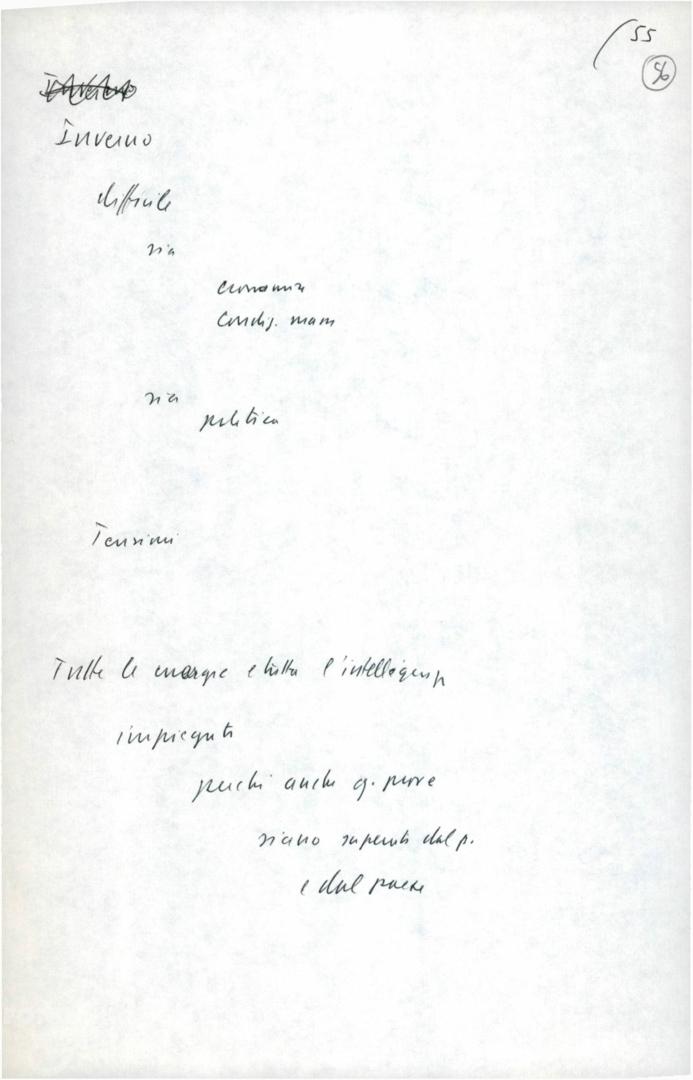 55
56
Inverno
Inverno
difficile
sia
economia
Condiz. mass
sia
politica
Tensioni
Tutte le energie e tutta l'intelligenza
impiegati
perché anche q. prove
siano superate dal p.
e dal paese